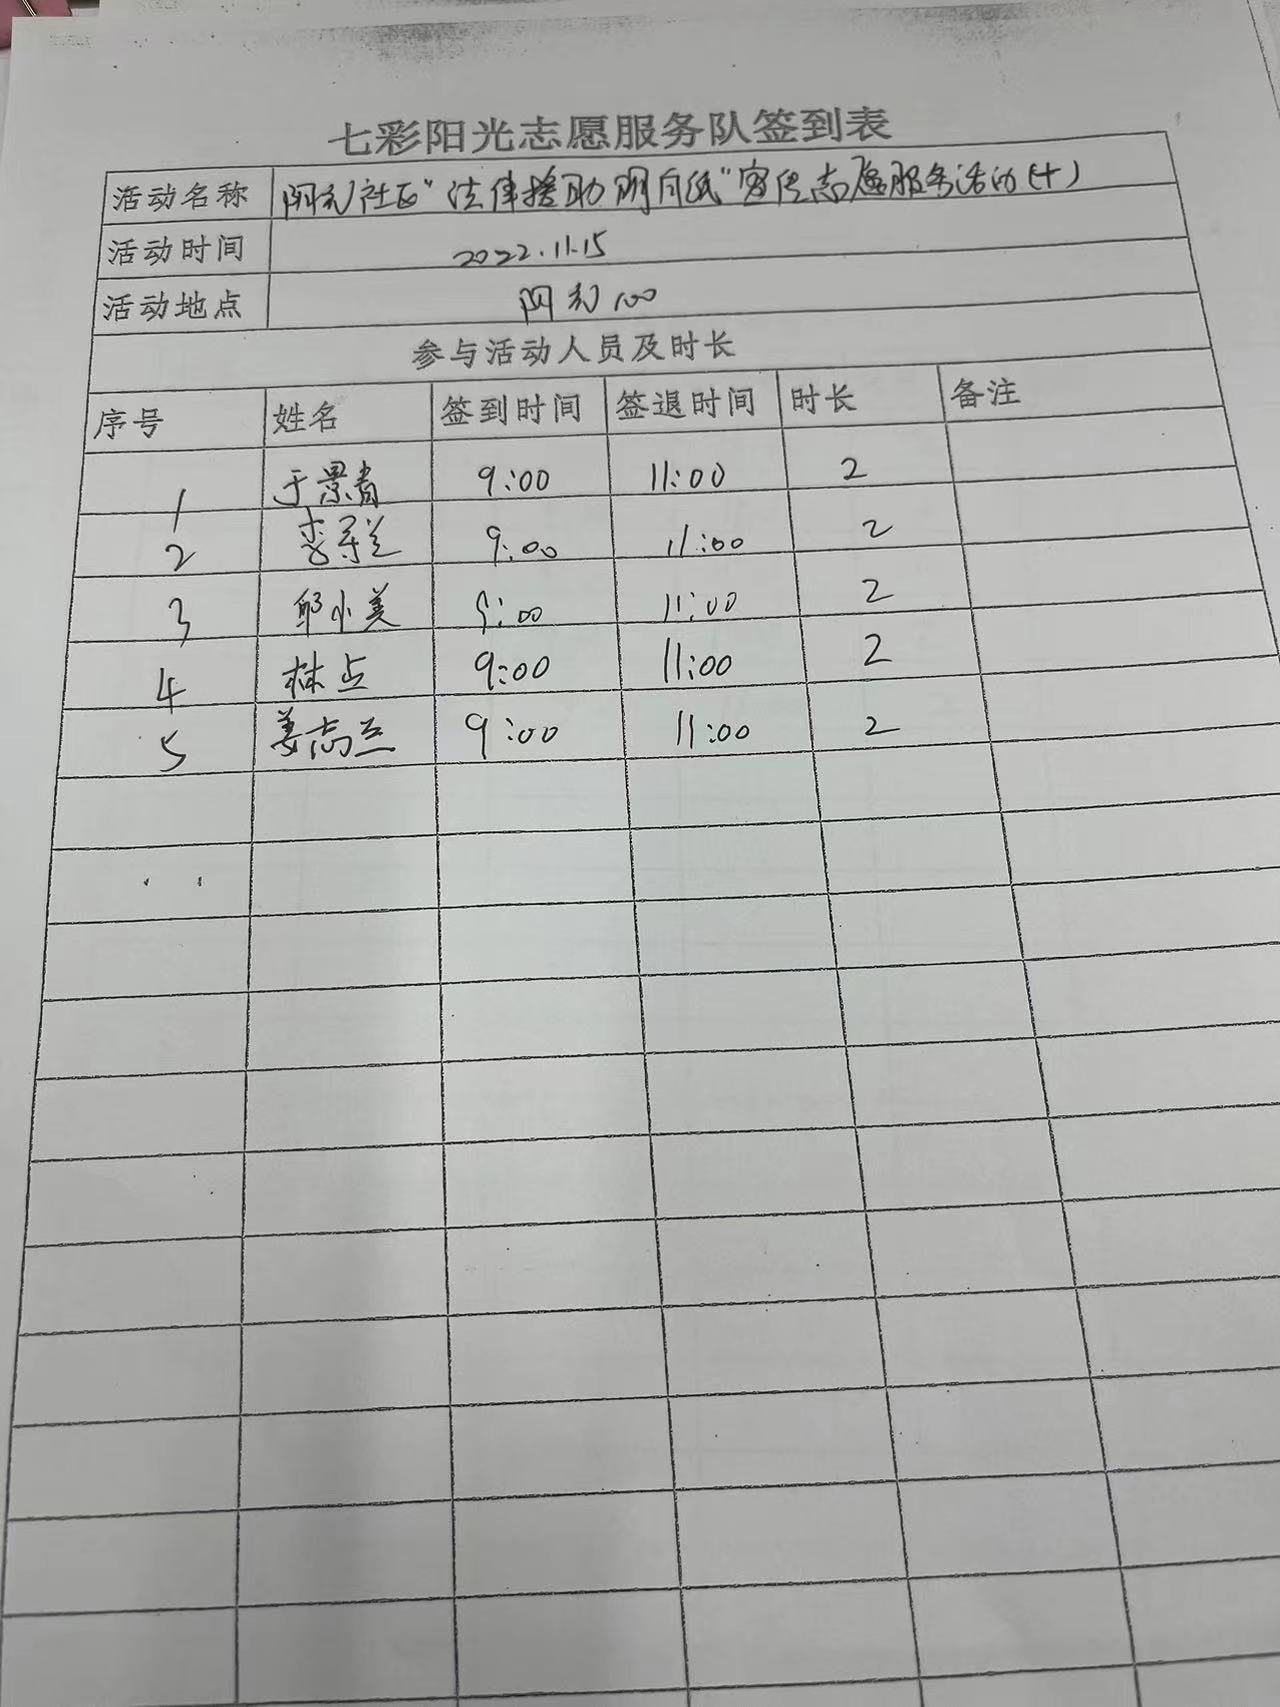 七彩阳光志愿服务队签到表
活动名称 阳光社区"法律援助明白纸"宣传志愿服务活动(十)
活动时间 2022.11.15
活动地点 阳光100
参与活动人员及时长
序号 姓名 签到时间 签退时间 时长 备注
1 于景青 9:00 11:00 2
2 9:00 11:00 2
3 邱小美 9:00 11:00 2
4 林点 9:00 11:00 2
5 姜志兰 9:00 11:00 2